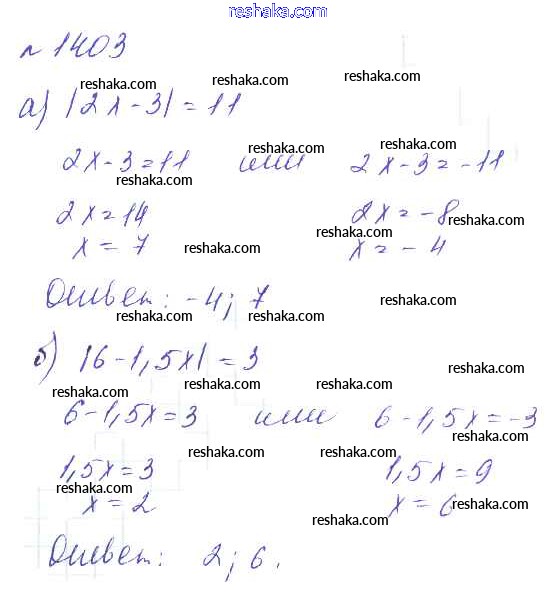 www.reshaka.com
№ 1403
reshaka.com reshaka.com
а) |2x-3| = 11
reshaka.com
reshaka.com reshaka.com
2x-3=11 или 2x-3=-11
reshaka.com
2x=14 2x=-8
reshaka.com reshaka.com
x=7 x=-4
reshaka.com
Ответ: -4; 7
reshaka.com reshaka.com reshaka.com
б) |6-1,5x| = 3
reshaka.com reshaka.com reshaka.com
6-1,5x=3 или 6-1,5x=-3
reshaka.com
reshaka.com reshaka.com
1,5x=3 1,5x=9
reshaka.com
x=2 x=6
reshaka.com reshaka.com
Ответ: 2; 6.
reshaka.com
reshaka.com reshaka.com